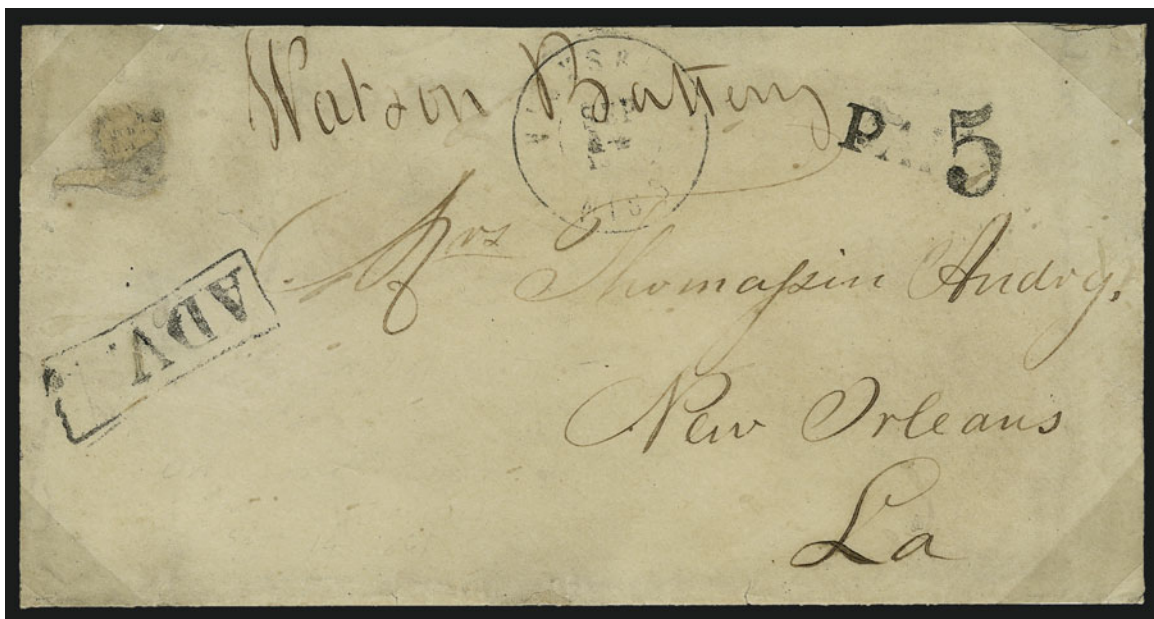 Watson Battery
SEP
MISS
PAID 5
Mrs Thomassin Andry.
ADV.
New Orleans
La